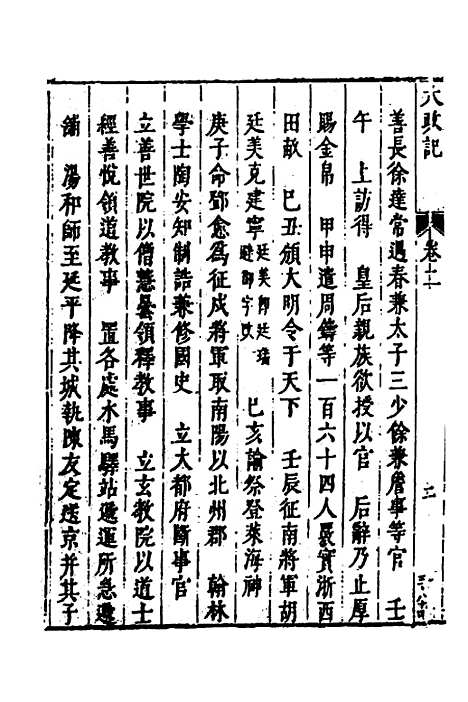 大政記
卷十一
二
善長徐達常遇春兼太子三少餘兼詹事等官　壬
午　上訪得　皇后親族欲授以官　后辭乃止厚
賜金帛　甲申遣周鑄等一百六十四人覈實浙西
田畝　己丑頒大明令于天下　壬辰征南將軍胡
廷美克建寧廷美即廷瑞避御字改　己亥諭祭登萊海神
庚子命鄧愈爲征戍將軍取南陽以北州郡　翰林
學士陶安知制誥兼修國史　立大都府斷事官
立善世院以僧慧曇領釋教事　立玄教院以道士
經善悅領道教事　置各處水馬驛站遞運所急遞
鋪　湯和師至延平降其城執陳友定送京并其子